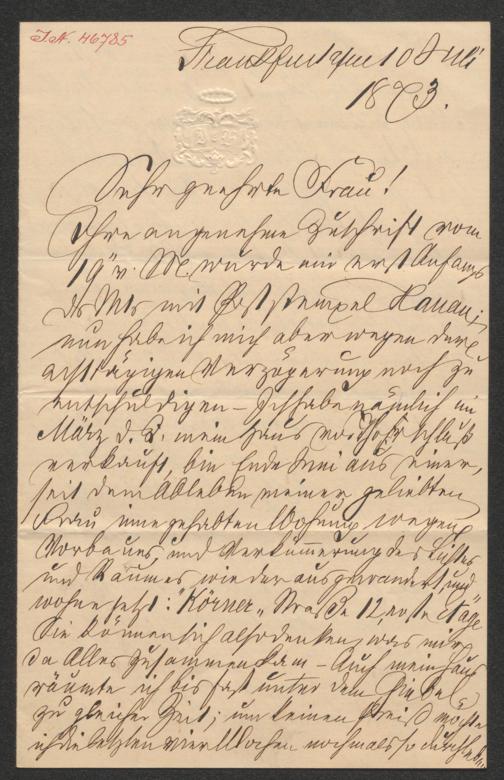 J.N. 46785
Frankfurt a/m 10 Juli
1893.
Sehr geehrte Frau!
Ihre angenehme Zuschrift vom
19" v. M. wurde mir erst Anfangs
ds Mts mit Poststempel Hanau;
nun habe ich mich aber wegen der
achttägigen Verzögerung noch zu
entschuldigen – Ich habe nämlich im
März d. J. mein Haus vor Thorschluß
verkauft, bin Ende Mai aus einer,
seit dem Ableben meiner geliebten
Frau innegehabten Wohnung wegen
Vorbaues, und Verkümmerung des Lichtes
und Raumes wieder ausgewandert, und
wohne jetzt: "Körner" Straße 12, erste Etage
Sie können sich also denken, was mir
da Alles zusammenkam – Auch mein Haus
räumte ich bis fast unter dem Giebel
zu gleicher Zeit; um keinen Preis möchte
ich die letzten vier Wochen nochmals so